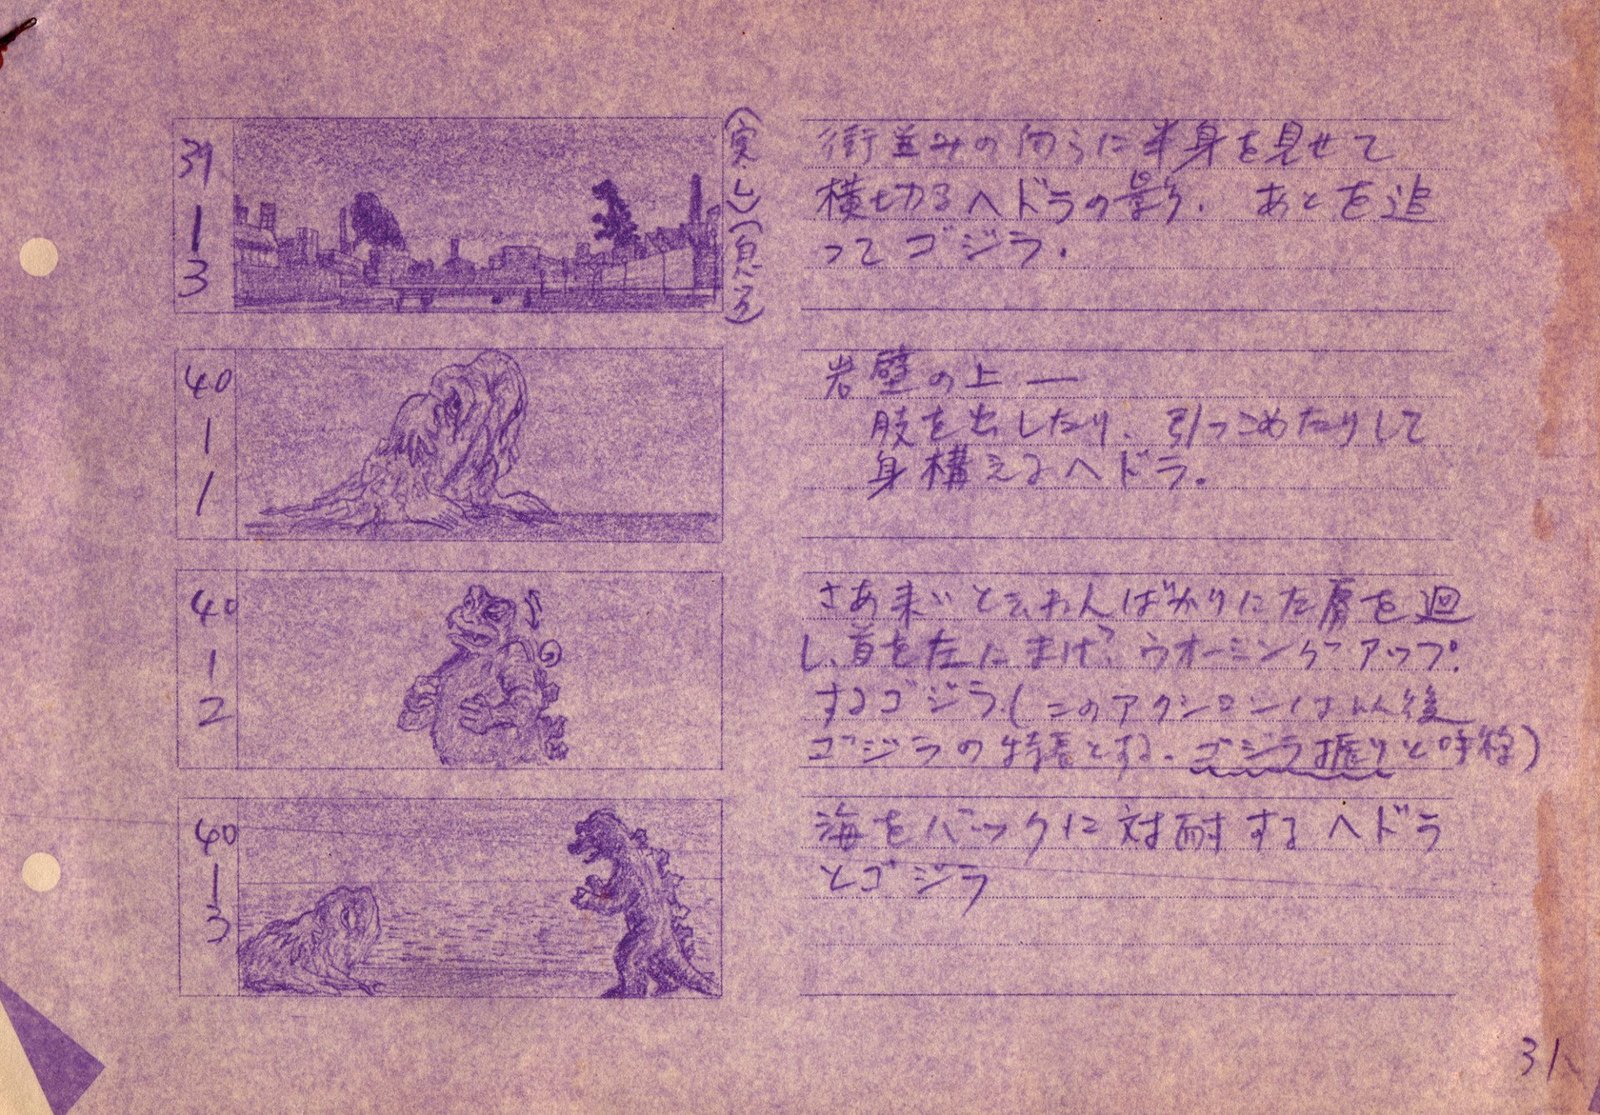 39
1
3
街並みの向うに半身を見せて
横切るヘドラの影。 あとを追
ってゴジラ。
40
1
1
岩壁の上 ―
肢を出したり、引っこめたりして
身構えるヘドラ。
40
1
2
さあ来いと云わんばかりに左肩を廻
し、首を左にまげ、ウオーミングアップ
するゴジラ。(このアクションは 後
ゴジラの特長とする。ゴジラ振りと呼称)
40
1
3
海をバックに対耐するヘドラ
とゴジラ
31